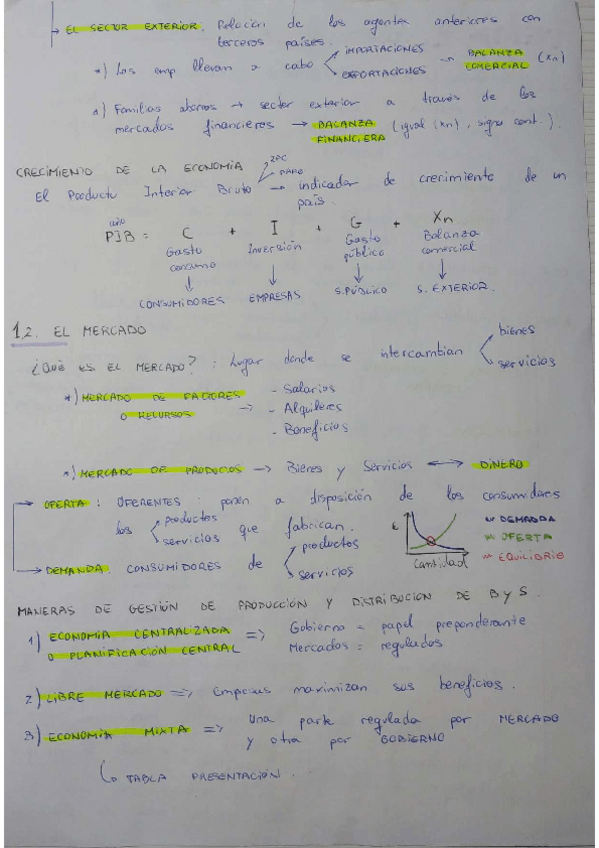 → EL SECTOR EXTERIOR. Relación de los agentes anteriores con
terceros países.
*) Las emp llevan a cabo IMPORTACIONES EXPORTACIONES → BALANZA COMERCIAL (Xn)
*) Familias ahorros → sector exterior a través de los
mercados financieros → BALANZA FINANCIERA (igual (Xn), signo cont.).
CRECIMIENTO DE LA ECONOMÍA
El Producto Interior Bruto → indicador de crecimiento de un
país.
PIB = C + I + G + Xn
Gasto consumo Inversión Gasto público Balanza comercial
CONSUMIDORES EMPRESAS S.PÚBLICO S. EXTERIOR.
1.2. EL MERCADO
¿QUÉ ES EL MERCADO? : Lugar donde se intercambian bienes servicios
*) MERCADO DE FACTORES O RECURSOS => - Salarios
- Alquileres
- Beneficios
*) MERCADO DE PRODUCTOS → Bienes y Servicios ↔ DINERO
→ OFERTA : OFERENTES : ponen a disposición de los consumidores
los productos servicios que fabrican.
→ DEMANDA: CONSUMIDORES de productos servicios
€
Cantidad
DEMANDA
OFERTA
EQUILIBRIO
MANERAS DE GESTIÓN DE PRODUCCIÓN Y DISTRIBUCIÓN DE B y S.
1) ECONOMÍA CENTRALIZADA => Gobierno = papel preponderante
O PLANIFICACIÓN CENTRAL Mercados = regulados
2) LIBRE MERCADO => Empresas maximizan sus beneficios.
3) ECONOMÍA MIXTA => Una parte regulada por MERCADO
y otra por GOBIERNO
↳ TABLA PRESENTACIÓN.